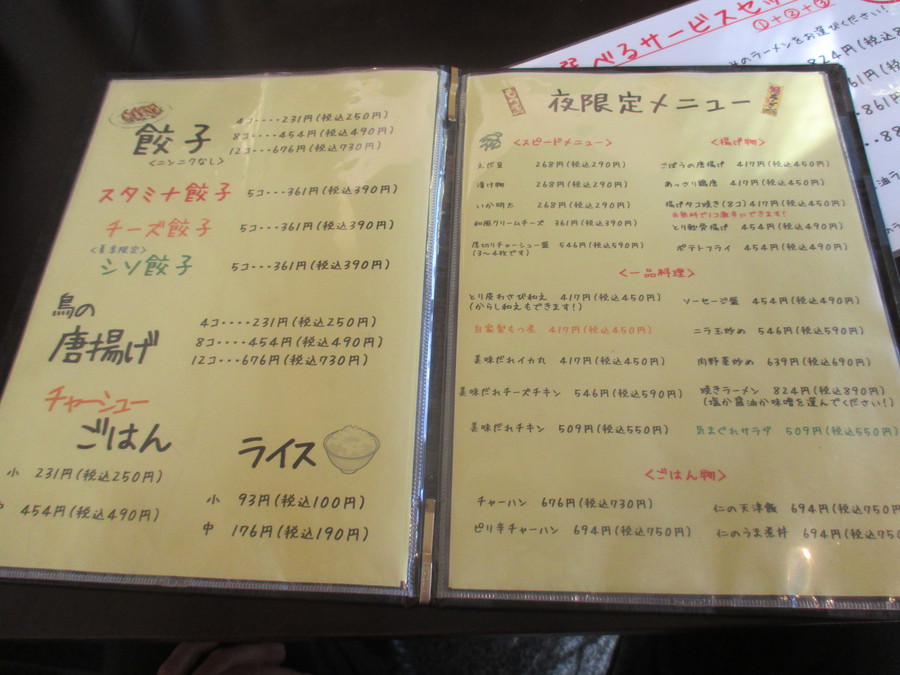 餃子
<ニンニクなし>
4コ‥‥231円(税込250円)
8コ‥‥454円(税込490円)
12コ‥‥676円(税込730円)
スタミナ餃子 5コ‥‥361円(税込390円)
チーズ餃子 5コ‥‥361円(税込390円)
<夏季限定>
シソ餃子 5コ‥‥361円(税込390円)
鳥の
唐揚げ
4コ‥‥231円(税込250円)
8コ‥‥454円(税込490円)
12コ‥‥676円(税込730円)
チャーシュー
ごはん
小 231円(税込250円)
中 454円(税込490円)
ライス
小 93円(税込100円)
中 176円(税込190円)
夜限定メニュー
<スピードメニュー>
えだ豆 268円(税込290円)
漬け物 268円(税込290円)
いか明太 268円(税込290円)
和風クリームチーズ 361円(税込390円)
厚切りチャーシュー盛 546円(税込590円)
(3〜4枚です)
<揚げ物>
ごぼうの唐揚げ 417円(税込450円)
あっさり鶏唐 417円(税込450円)
揚げタコ焼き(8コ) 417円(税込450円)
とり軟骨揚げ 454円(税込490円)
ポテトフライ 454円(税込490円)
<一品料理>
とり皮わさび和え 417円(税込450円)
(からし和えもできます!)
自家製もつ煮 417円(税込450円)
美味だれイカ丸 417円(税込450円)
美味だれチーズチキン 546円(税込590円)
美味だれチキン 509円(税込550円)
ソーセージ盛 454円(税込490円)
ニラ玉炒め 546円(税込590円)
肉野菜炒め 639円(税込690円)
焼きラーメン 824円(税込890円)
(塩か醤油か味噌を選んでください!)
気まぐれサラダ 509円(税込550円)
<ごはん物>
チャーハン 676円(税込730円)
ピリ辛チャーハン 694円(税込750円)
仁の天津飯 694円(税込750円
仁のうま煮丼 694円(税込750
べるサービスセッ
①+②+③
のラーメンをお選びください!
824円(税込8
861円